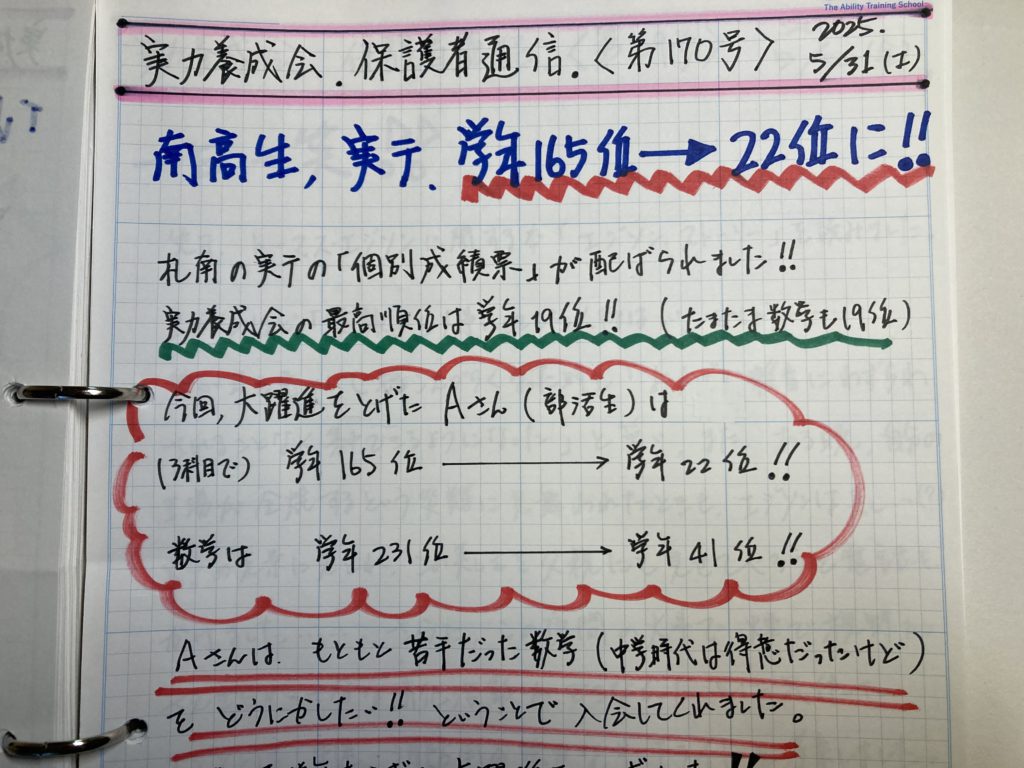 The Ability Training School
実力養成会.保護者通信.〈第170号〉
2025.
5/31(土)
南高生, 実テ. 学年165位→22位に!!
札南の実テの「個別成績票」が配ばられました!!
実力養成会の最高順位は学年19位!! (たまたま数学も19位)
今回, 大躍進をとげた Aさん(部活生)は
(3科目で) 学年 165 位 → 学年 22 位 !!
数学は 学年 231 位 → 学年 41 位 !!
Aさんは. もともと苦手だった数学(中学時代は得意だったけど)
を どうにかしたい!! ということで 入会してくれました。